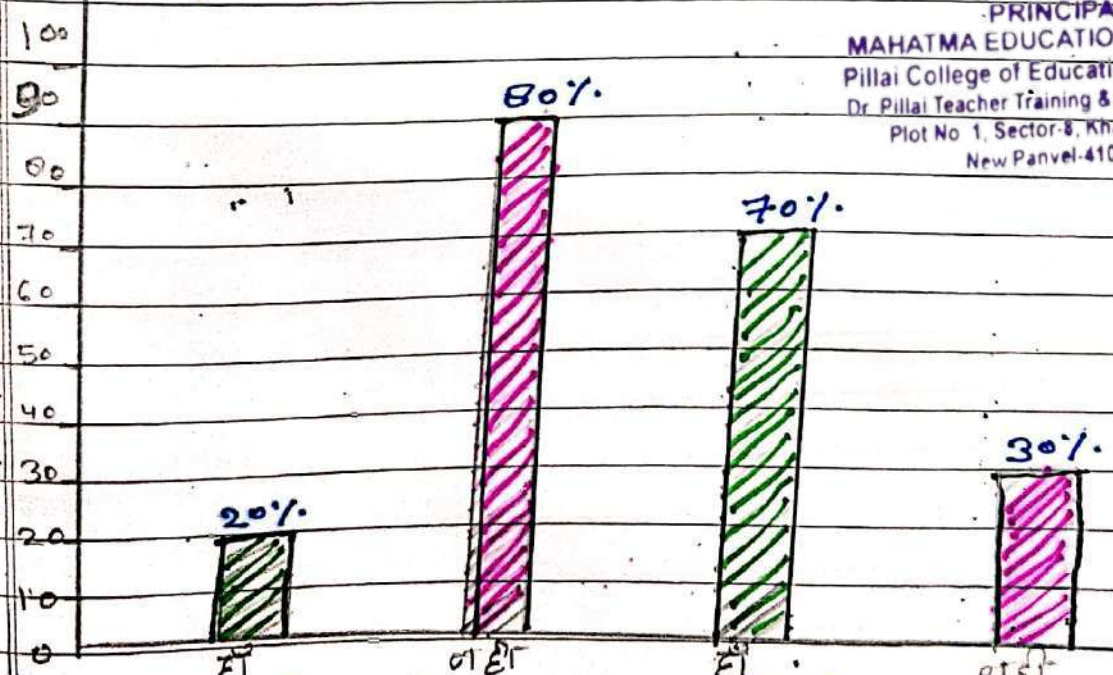 PRINCIPA
MAHATMA EDUCATIO
Pillai College of Educati
Dr. Pillai Teacher Training &
Plot No 1, Sector-8, Kh
New Panvel-410
100
90
80
70
60
50
40
30
20
10
0
20%
80%
70%
30%